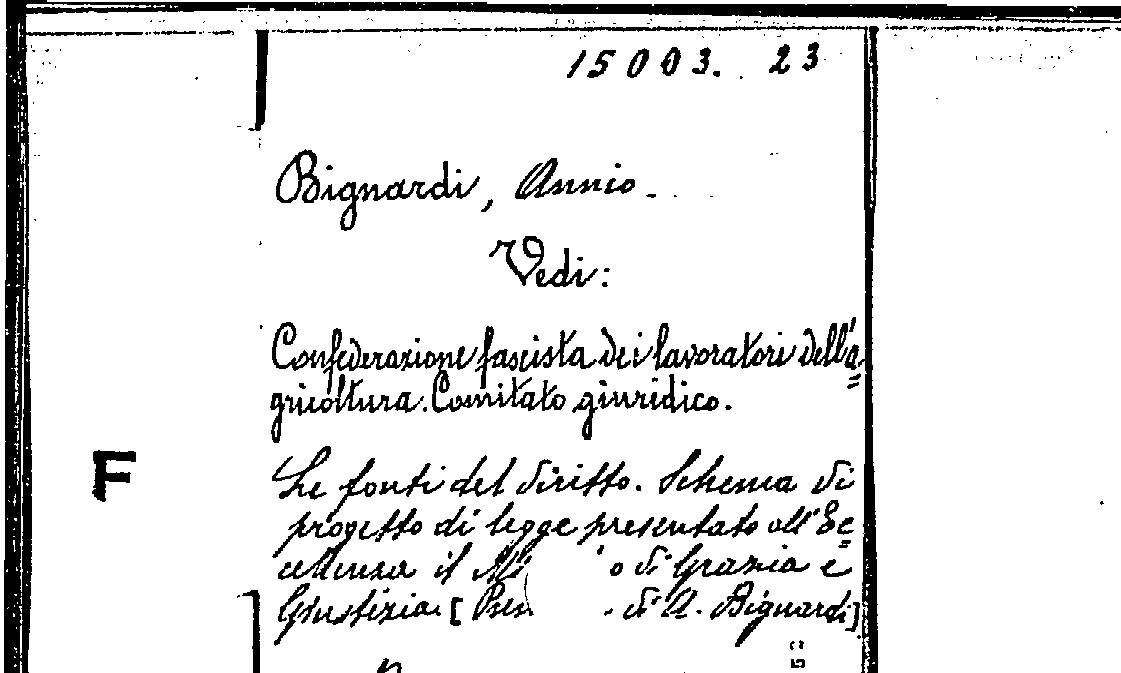 15003. 23
Bignardi, Annio.
Vedi:
Confederazione fascista dei lavoratori dell'a=
gricoltura. Comitato giuridico.
F
Le fonti del diritto. Schema di
progetto di legge presentato all'Ec=
cellenza il Mi o di Grazia e
Giustizia. [ di A. Bignardi]